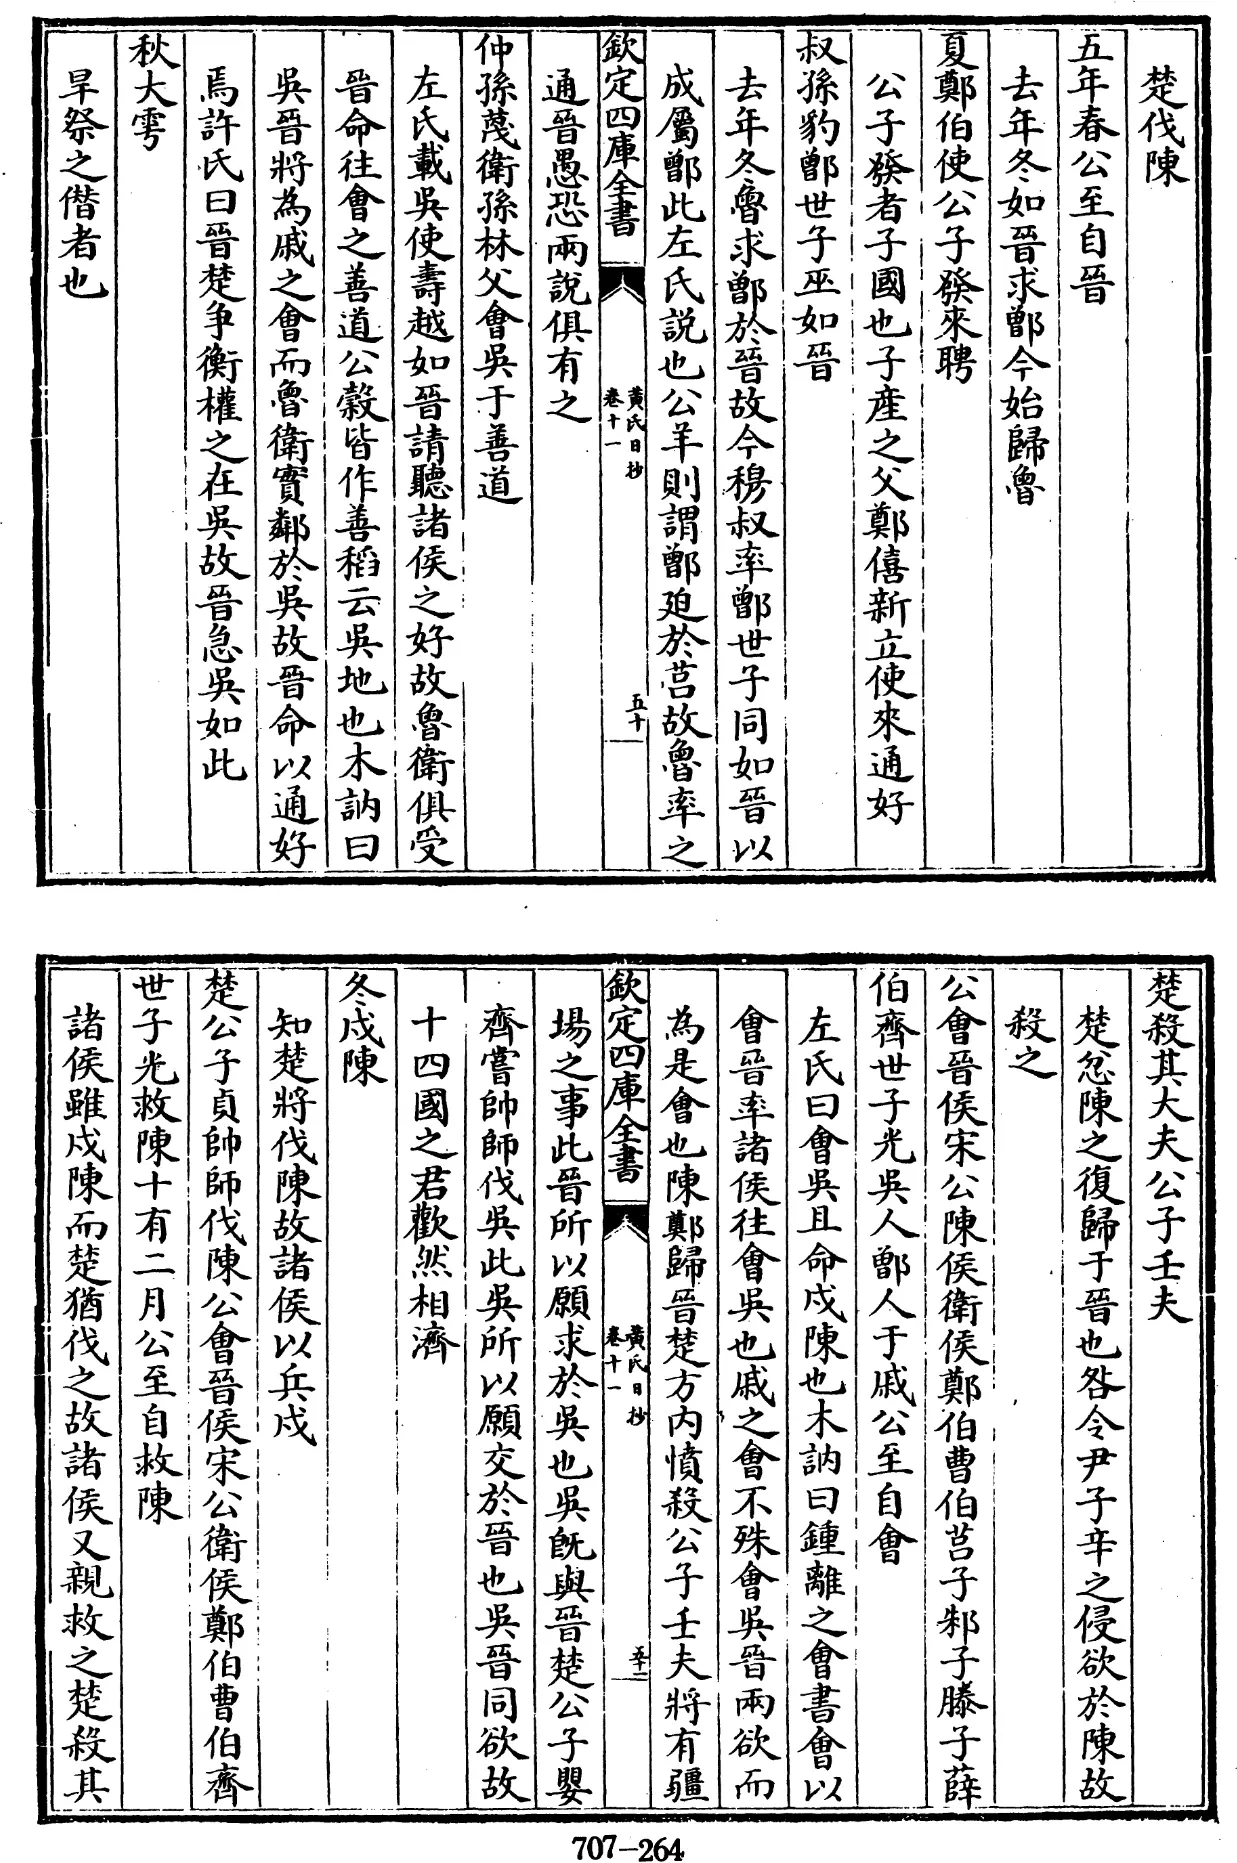 楚伐陳
五年春公至自晉
去年冬如晉求鄫今始歸魯
夏鄭伯使公子發來聘
公子發者子國也子產之父鄭僖新立使來通好
叔孫豹鄫世子巫如晉
去年冬魯求鄫於晉故今穆叔率鄫世子同如晉以
成屬鄫此左氏説也公羊則謂鄫廹於莒故魯率之
欽定四庫全書
黃氏日抄
卷十一
五十
通晉愚恐兩説俱有之
仲孫蔑衛孫林父會吳于善道
左氏載吳使壽越如晉請聽諸侯之好故魯衛俱受
晉命往會之善道公穀皆作善稻云吳地也木訥曰
吳晉將為戚之會而魯衛實鄰於吳故晉命以通好
焉許氏曰晉楚爭衡權之在吳故晉急吳如此
秋大雩
旱祭之僭者也
楚殺其大夫公子壬夫
楚忿陳之復歸于晉也咎令尹子辛之侵欲於陳故
殺之
公會晉侯宋公陳侯衛侯鄭伯曹伯莒子邾子滕子薛
伯齊世子光吳人鄫人于戚公至自會
左氏曰會吳且命戍陳也木訥曰鍾離之會書會以
會晉率諸侯往會吳也戚之會不殊會吳晉兩欲而
為是會也陳鄭歸晉楚方內憤殺公子壬夫將有疆
欽定四庫全書
黃氏日抄
卷十一
五十一
場之事此晉所以願求於吳也吳既與晉楚公子嬰
齊嘗帥師伐吳此吳所以願交於晉也吳晉同欲故
十四國之君歡然相濟
冬戍陳
知楚將伐陳故諸侯以兵戍
楚公子貞帥師伐陳公會晉侯宋公衛侯鄭伯曹伯齊
世子光救陳十有二月公至自救陳
諸侯雖戍陳而楚猶伐之故諸侯又親救之楚殺其
707-264